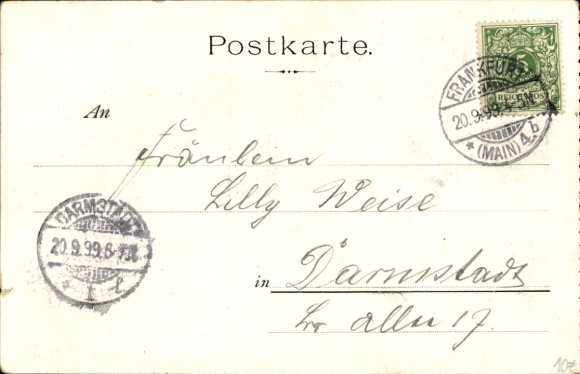 Postkarte.
5
REICHSPOST
FRANKFURT
20.9.99.4-5N.
* (MAIN) 4 b
An
Fräulein
Lilly Weise
DARMSTADT
20.9.99.6-7N.
* 1 t
in Darmstadt
allee 17.